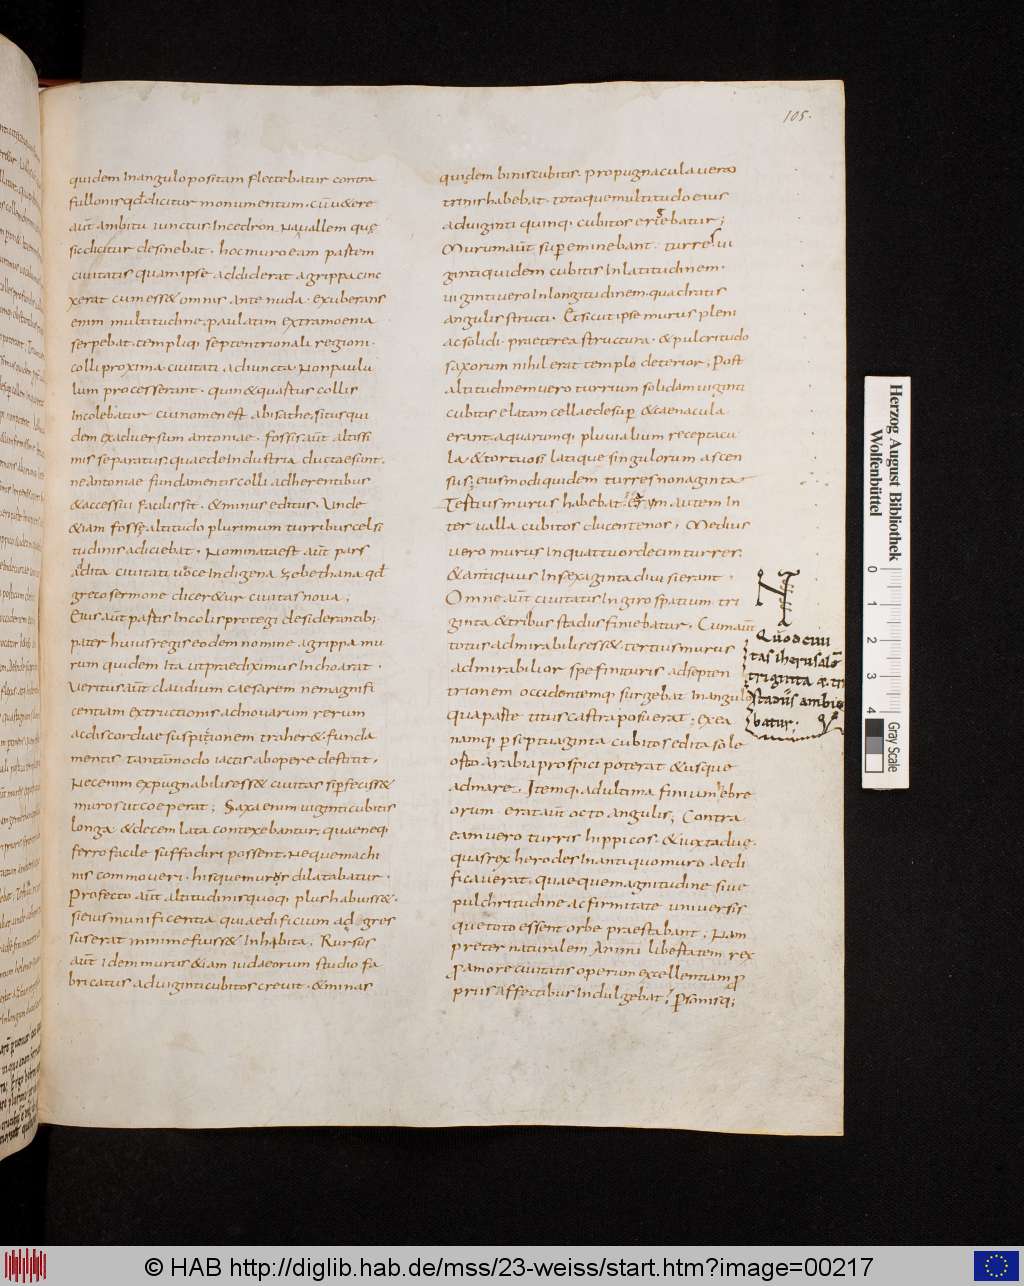 105.
quidem Inangulo positam flectebatur contra
fullonis qđ dicitur monumentum. cū uetere
aūt ambitu iunctus In cedron Nauallem quę
sic dicitur desinebat. hoc muro eam partem
ciuitatis quam ipse addiderat agrippa cinc
xerat cum esset omnis ante nuda. exuberans
enim multitudine, paulatim extra moenia
serpebat. templiq; septentrionali regioni.
colli proxima ciuitati adiuncta. Non paulu
lum processerant. quin & quartus collis
Incolebatur cui nomen est abisathe, situs qui
dem ex aduersum antoniae. fossis aūt altissi
mis separatus, quae de Industria ductae sunt.
ne antoniae fundamentis colli adherentibus
& accessui facilis sit. & minus editus. Unde
& iam fossę altitudo plurimum turribus celsi
tudinis adiciebat. Nominata est aūt pars
addita ciuitati uoce Indigena bezethana qđ
greco sermone diceretur ciuitas noua;
Eius aūt partis Incolis protegi desiderantib;
pater huius regis eodem nomine agrippa mu
rum quidem Ita ut praediximus Inchoarat.
Veritus aūt claudium caesarem ne magnifi
centiam extructionis ad nouarum rerum
ac discordiae suspitionem traheret. funda
mentis tantūmodo iactis ab opere destitit.
Nec enim expugnabilis esset ciuitas si perfecisset
muros ut coeperat; Saxa enim uiginti cubitis
longa & decem lata contexebantur, quae neq;
ferro facile suffodiri possent, Neque machi
nis commoueri. hisque murus dilatabatur.
Profecto aūt altitudinis quoq; plus habuisset.
si eius munificentia qui aedificium adgres
sus erat minime fuisset Inhibita. Rursus
aūt Idem murus & iam iudaeorum studio fa
bricatus ad uiginti cubitos creuit. & minas
quidem binis cubitis. propugnacula uero
trinis habebat. totaque multitudo eius
ad uiginti quinq; cubitos erigebatur;
Murum aūt supereminebant. turres ui
ginti quidem cubitis In latitudinem.
uiginti uero In longitudinem. quadratis
angulis structi. Et sicut ipse murus pleni
ac solidi. praeterea structura. & pulcritudo
saxorum nihil erat templo deterior; Post
altitudinem uero turrium solidam uiginti
cubitis elatam cellae desuper & caenacula
erant. aquarumq; pluuialium receptacu
la. & tortuosi latique singulorum ascen
sus; eiusmodi quidem turres nonaginta
Tertius murus habebat. Erant autem In
ter ualla cubitos ducentenos; Medius
uero murus In quattuordecim turres.
& antiquus In sexaginta diuisi erant.
Omne aūt ciuitatis In giro spatium. tri
ginta & tribus stadiis finiebatur. Cum aūt
totus admirabilis esset. tertius murus
admirabilior spe finturis ad septen
trionem occidentemq; surgebat In angulo
qua parte titus castra posuerat; ex ea
namq; per septuaginta cubitos edita sole
orto arabia prospici poterat & usque
ad mare. Itemq; ad ultima finium ebre
orum. erat aūt octo angulis; Contra
eam uero turris hippicos. & iuxta duę.
quas rex herodes In antiquo muro aedi
ficauerat. quaeque magnitudine siue
pulchritudine ac firmitate uniuersis
que toto essent orbe praestabant; Nam
preter naturalem animi libertatem rex
pro amore ciuitatis operum excellentiam pro
priis affectibus Indulgebat; Primisq;
Quod ciui
tas iherusalē
triginta & tri
stadiis ambie
batur.
Herzog August Bibliothek
Wolfenbüttel
0 1 2 3 4
Gray Scale
© HAB http://diglib.hab.de/mss/23-weiss/start.htm?image=00217